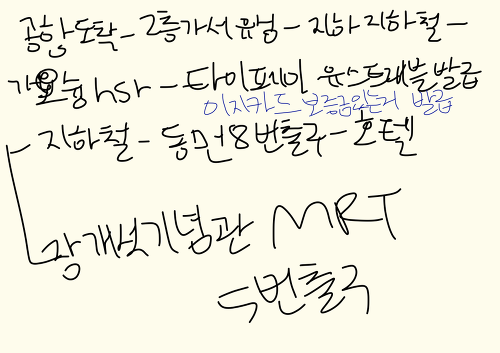 공항도착 - 2층가서 유심 - 지하 지하철 -
가오슝 hsr - 타이페이 유스트래블 발급
이지카드 보증금있는거 발급
지하철 - 동먼 8번출구 - 호텔
장개석기념관 MRT
5번출구